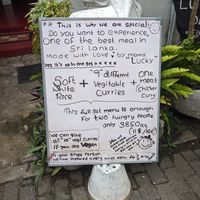 ** This is why we are special!
Do you want to experience
one of the best meal in
Sri Lanka.
Made with Love by mama
Lucky
Soft White Rice + "9" different Vegitable Curries + one meat (chicken Curry)
This full set menu is enough
For two hungry people
only 3850/=
(11$/10€)
we can give
all "10" vegi curries
if you are vegan